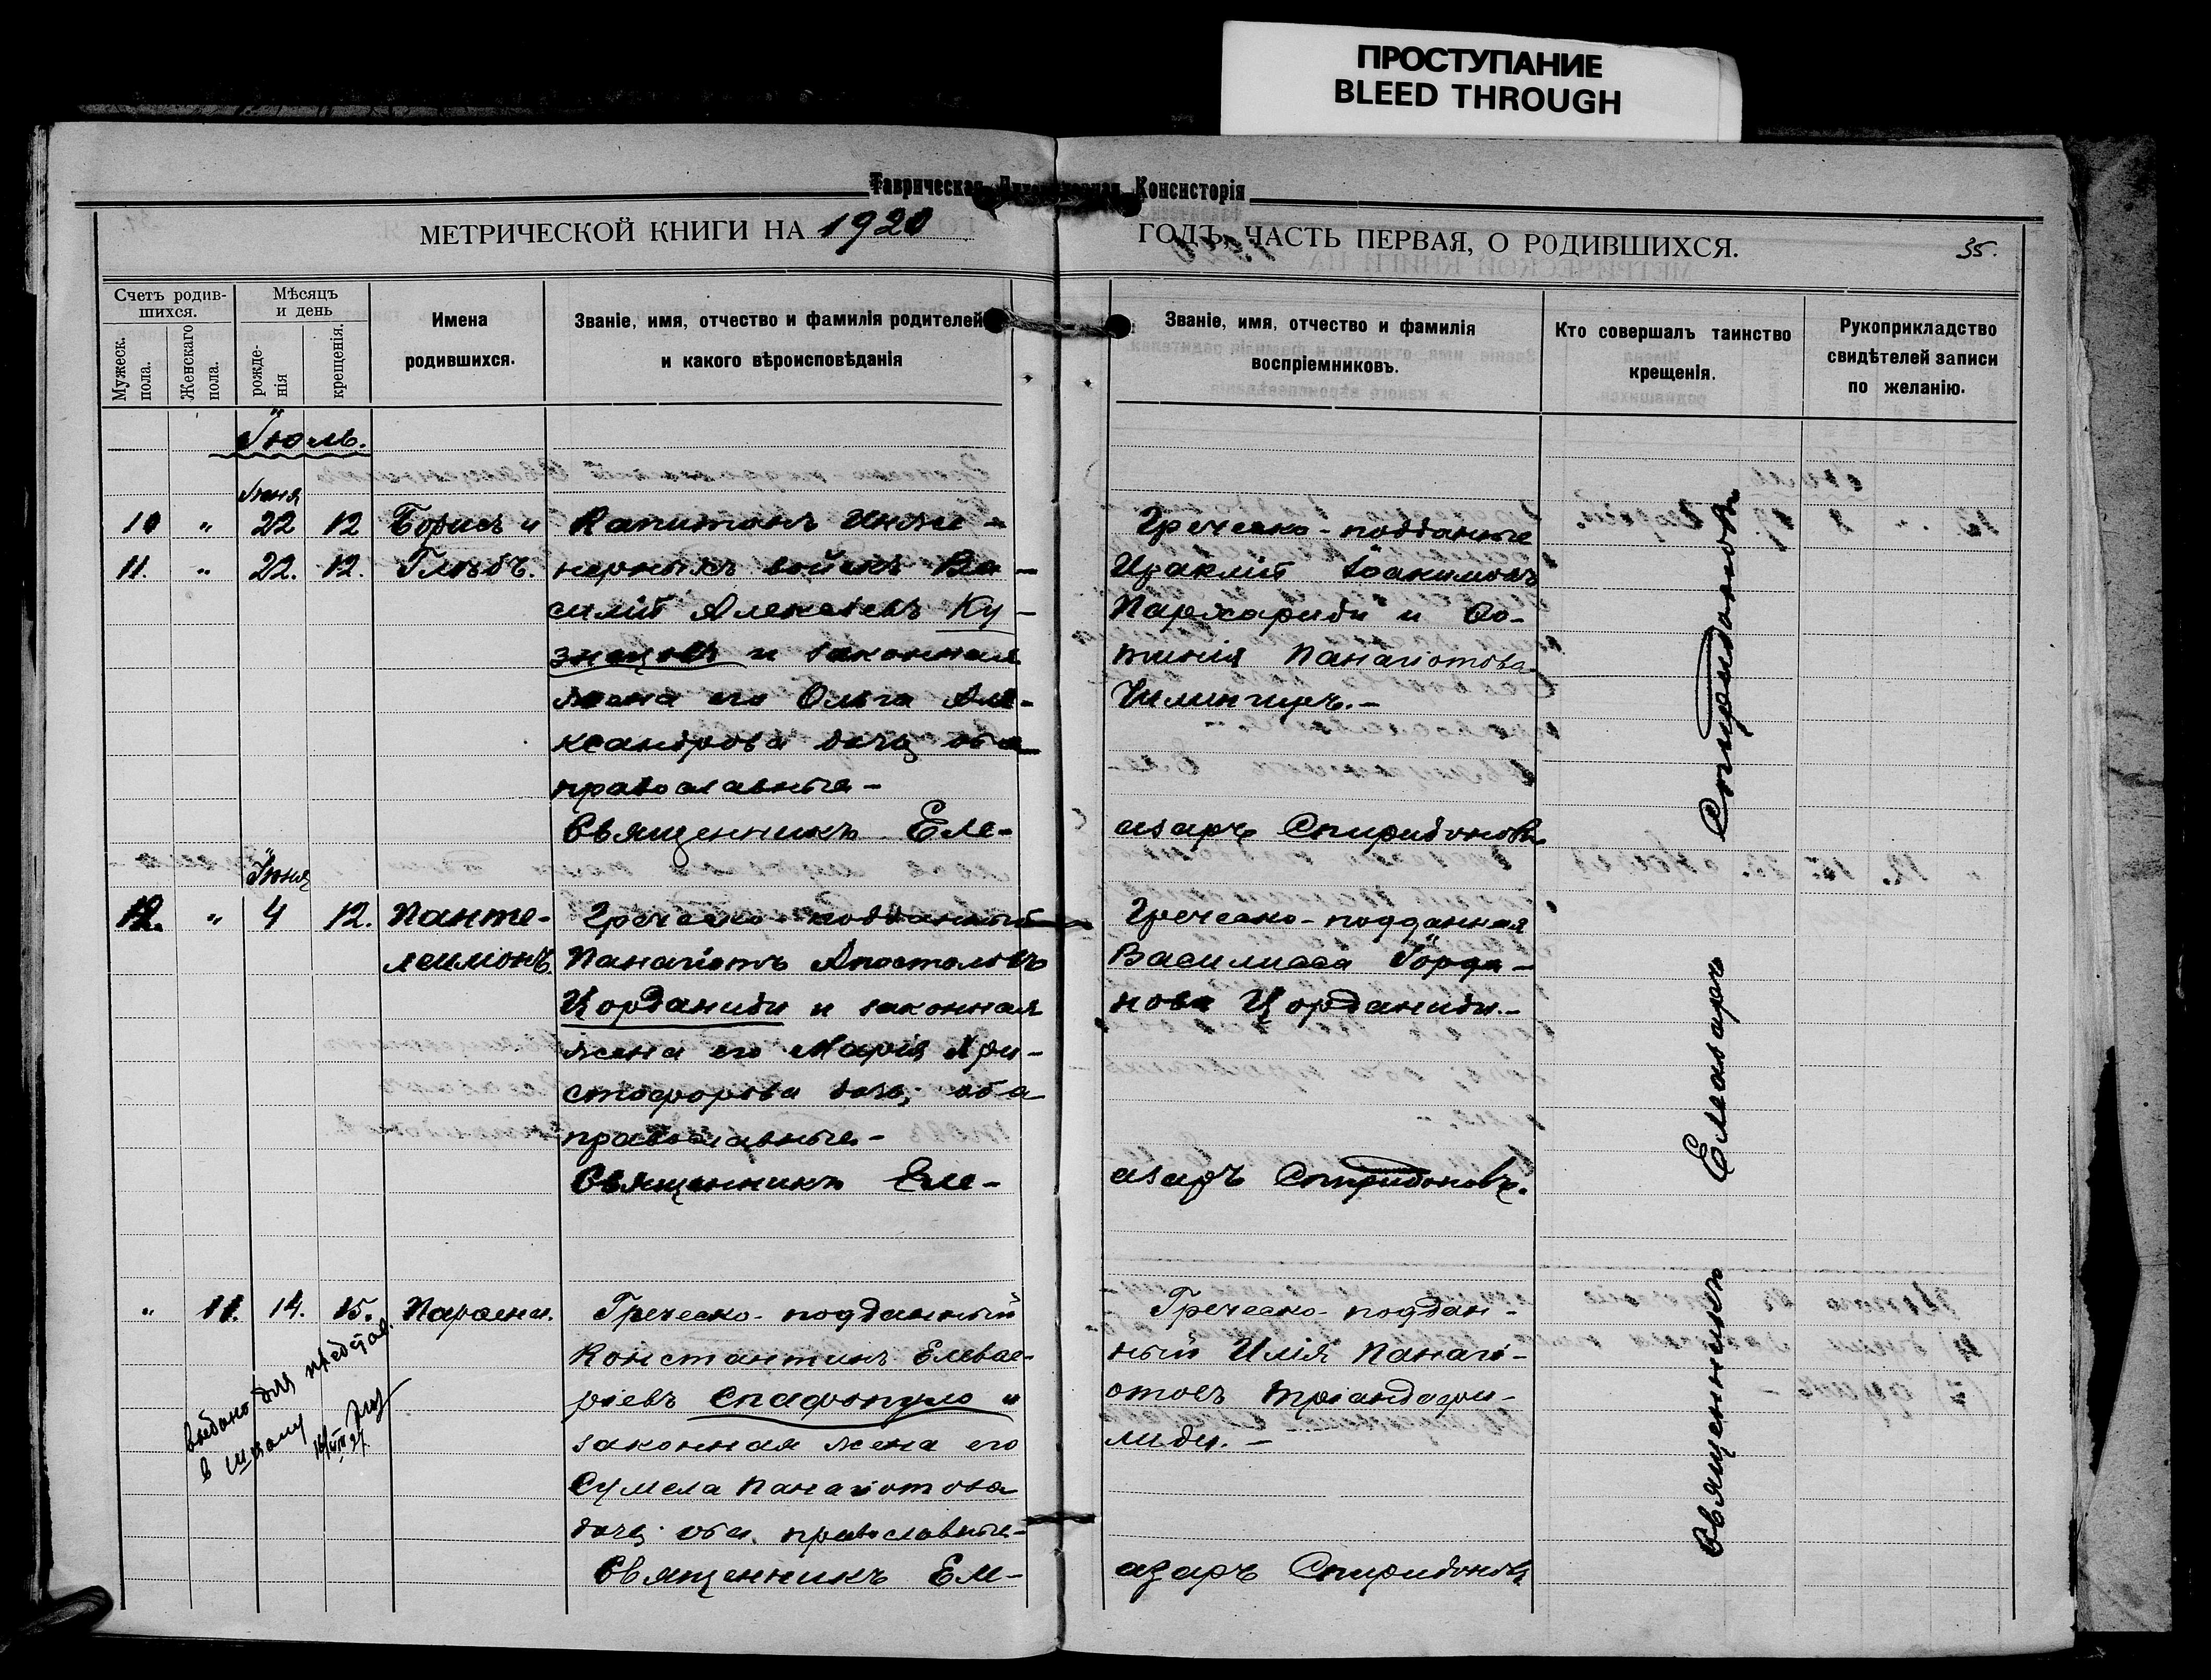 ПРОСТУПАНИЕ
BLEED THROUGH
Таврическая Консисторія
МЕТРИЧЕСКОЙ КНИГИ НА 1920
ГОДЪ, ЧАСТЬ ПЕРВАЯ, О РОДИВШИХСЯ.
35.
Счетъ родив-
шихся.
Мужеск.
пола.
Женскаго
пола.
Мѣсяцъ
и день
рожде-
нія
крещенія.
Имена
родившихся.
Званіе, имя, отчество и фамилія родителей
и какого вѣроисповѣданія
Званіе, имя, отчество и фамилія
воспріемниковъ.
Кто совершалъ таинство
крещенія.
Рукоприкладство
свидѣтелей записи
по желанію.
Іюль.
Іюня
10 „ 22 12 Борисъ и Капитанъ Инже-
11. „ 22. 12. Глѣбъ. нерныхъ войскъ Ва-
силій Алексѣевъ Ку-
знецовъ и законная
жена его Ольга Але-
ксандрова дочь оба
православные-
Священникъ Еле-
Греческо-подданные
Ираклій Іоакимовъ
Пархариди и Фо-
тинія Панагіотова
Чилингиръ.-
азаръ Спиридоновъ
Іюня
12. „ 4 12. Панте- Греческо-подданный
леимонъ. Панагіотъ Апостоловъ
Иорданиди и законная
жена его Марія Хри-
стофорова дочь; оба
православные-
Священникъ Еле-
Греческо-подданная
Василисса Іорда-
нова Иорданиди.-
азаръ Спиридоновъ.
„ 11. 14. 15. Параскева. Греческо-подданный
Константинъ Елевѳе-
ріевъ Спафопуло и
законная жена его
Сумела Панагіотова
дочь оба православные-
Священникъ Еле-
Греческо-поддан-
ный Илія Панагі-
отовъ Тріандафи-
лиди.-
азаръ Спиридоновъ
выдано для представ.
в школу
Священникъ Елеазаръ Спиридоновъ